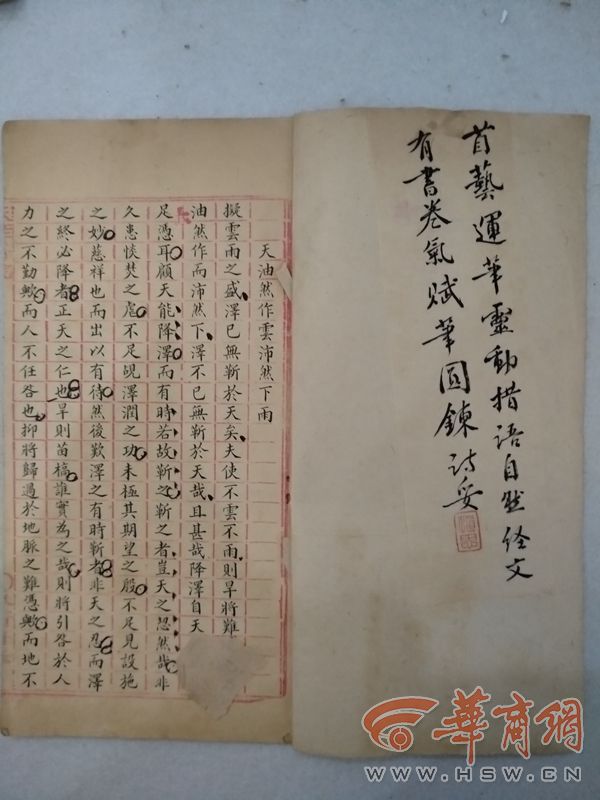 首藝運筆靈動措語自然經文
有書卷氣賦筆圓鍊詩妥
天油然作雲沛然下雨
擬雲雨之盛澤已無靳於天矣夫使不雲不雨則旱將難
油然作而沛然下澤不已無靳於天哉且甚哉降澤自天
足憑耳顧天能降澤而有時若故靳之靳之者豈天之恝然哉非
久患惔焚之虐不足覘澤潤之功未極其期望之殷不足見設施
之妙慈祥也而出以有待然後歎澤之有時靳者非天之忍而澤
之終必降者正天之仁也旱則苗槁誰實為之哉則將引咎於人
力之不勤歟而人不任咎也抑將歸過於地脈之難憑歟而地不
華商網
WWW.HSW.CN